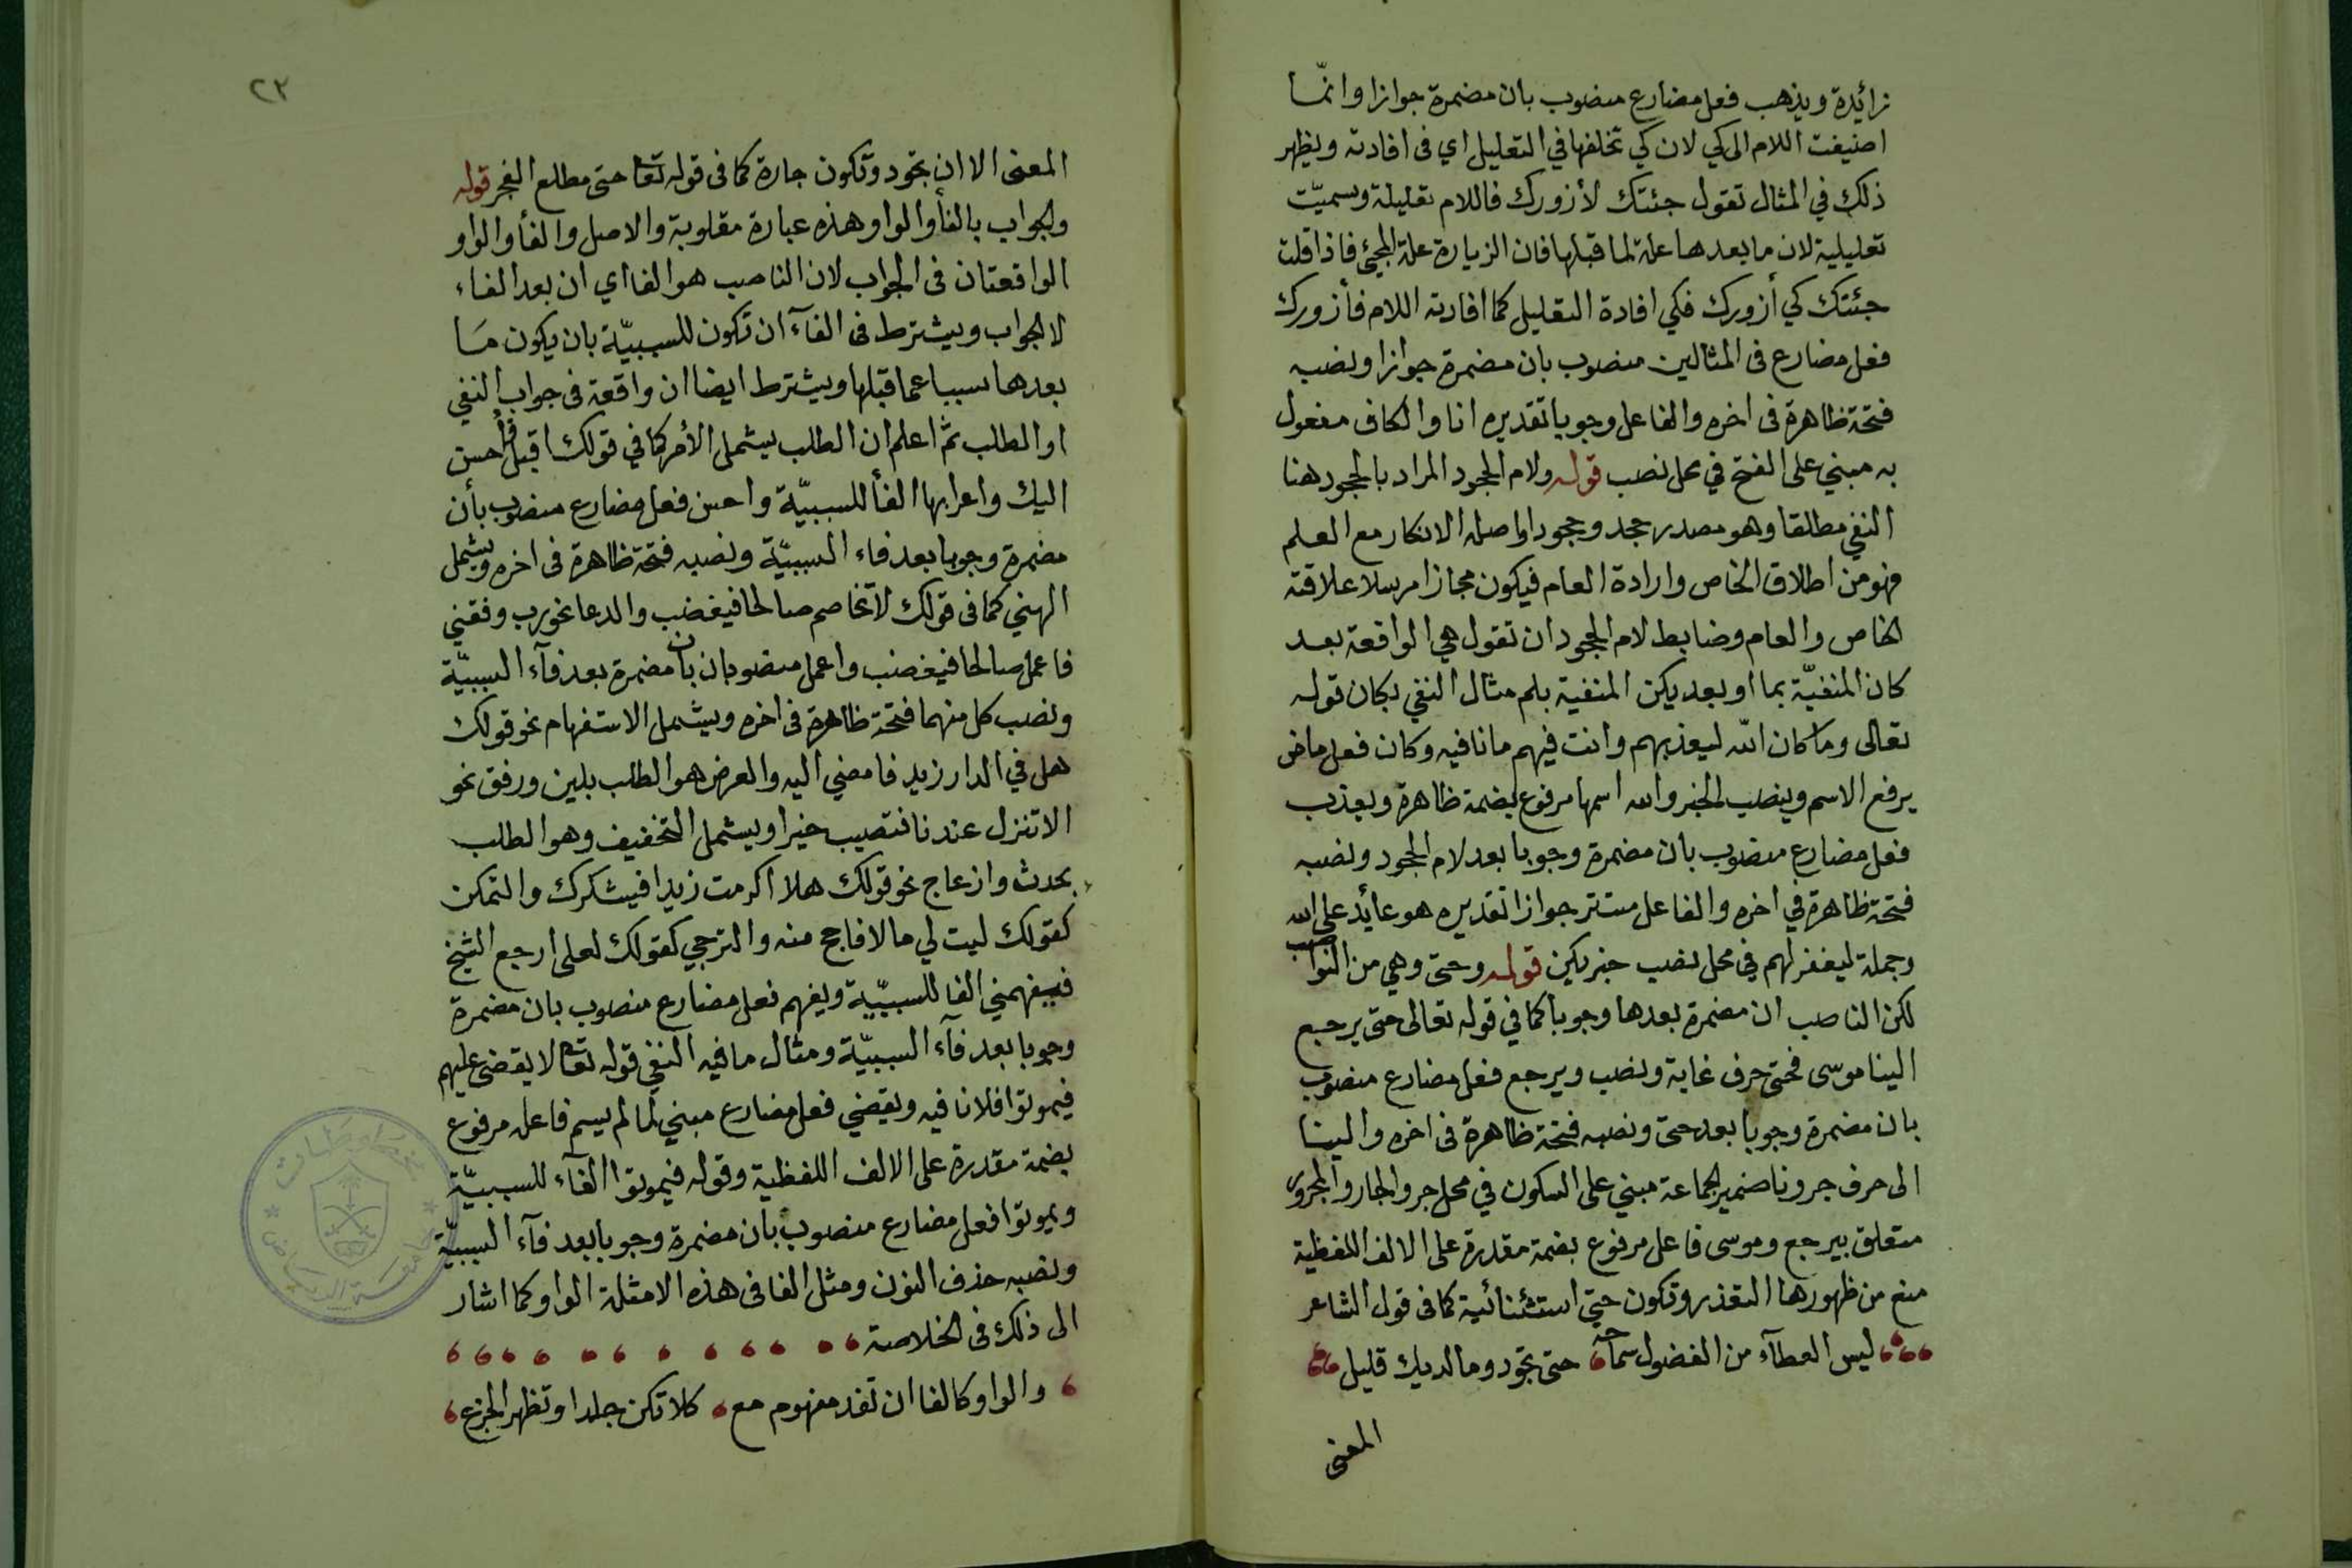 زائدة ويذهب فعل مضارع منصوب بان مضمرة جوازا وانّما
اضيفت اللام الى كي لان كي تخلفها في التعليل اي فى افادته ويظهر
ذلك في المثال تقول جئتك لأزورك فاللام تعليلة وسميّت
تعليلية لان ما بعدها علة لما قبلها فان الزيارة علة المجيئ فاذا قلت
جئتك كي أزورك فكي افادة التعليل كما افادته اللام فأزورك
فعل مضارع فى المثالين منصوب بان مضمرة جوازا ونصبه
فتحة ظاهرة فى اخره والفاعل وجوبا تقديره انا والكاف مفعول
به مبني على الفتح في محل نصب قوله ولام الجحود المراد بالجحود هنا
النفي مطلقا وهو مصدر جحد وجحودا واصله الانكار مع العلم
فهو من اطلاق الخاص وارادة العام فيكون مجازا مرسلا علاقته
الخاص والعام وضابط لام الجحود ان تقول هي الواقعة بعد
كان المنفيّة بما او بعد يكن المنفية بلم مثال النفي بكان قوله
تعالى وما كان الله ليعذبهم وانت فيهم ما نافيه وكان فعل ماض
يرفع الاسم وينصب الخبر والله اسمها مرفوع بضمة ظاهرة ويعذب
فعل مضارع منصوب بان مضمرة وجوبا بعد لام الجحود ونصبه
فتحة ظاهرة في اخره والفاعل مستتر جوازا تقديره هو عايد على الله
وجملة ليغفر لهم في محل نصب خبر يكن قوله وحتى وهي من النواصب
لكن الناصب ان مضمرة بعدها وجوبا كما في قوله تعالى حتى يرجع
الينا موسى فحتى حرف غاية ونصب ويرجع فعل مضارع منصوب
بان مضمرة وجوبا بعد حتى ونصبه فتحة ظاهرة فى اخره والينا
الى حرف جر ونا ضمير الجماعة مبني على السكون في محل جر والجار والمجرور
متعلق بيرجع وموسى فاعل مرفوع بضمة مقدرة على الالف اللفظية
منع من ظهورها التعذر وتكون حتى استثنائية كما فى قول الشاعر
ليس العطآء من الفضول سماحة حتى تجود وما لديك قليل
المعنى
٢٣
المعنى الا ان تجود وتكون جارة كما فى قوله تعا حتى مطلع الفجر قوله
والجواب بالفأ والواو هذه عبارة مقلوبة والاصل والفأ والواو
الواقعتان فى الجواب لان الناصب هو الفا اي ان بعد الفاء
لا الجواب ويشترط فى الفآء ان تكون للسببيّة بان يكون مَا
بعدها سببا عما قبلها ويشترط ايضا ان واقعة فى جواب النفي
او الطلب ثم اعلم ان الطلب يشمل الأمر كما في قولك اقبل فأحسن
اليك واعرابها الفأ للسببيّة واحسن فعل مضارع منصوب بأن
مضمرة وجوبا بعد فاء السببيّة ونصبه فتحة ظاهرة فى اخره ويشمل
النهي كما فى قولك لا تخاصم صالحا فيغضب والدعا نحو رب وفقني
فاعمل صالحا فيغضب واعمل منصوبان بان مضمرة بعد فآء السببيّة
ونصب كل منهما فتحة ظاهرة فى اخره ويشمل الاستفهام نحو قولك
هل في الدار زيد فامضي اليه والعرض هو الطلب بلين ورفق نحو
الا تنزل عندنا فتصيب خيرا ويشمل التخفيف وهو الطلب
بحدث وازعاج نحو قولك هلا اكرمت زيدا فيشكرك والتمكن
كقولك ليت لي مالا فاحج منه والترجي كقولك لعلى ارجع الشيخ
فيفهمني الفا للسببيّة ويفهم فعل مضارع منصوب بان مضمرة
وجوبا بعد فآء السببيّة ومثال ما فيه النفي قوله تعا لا يقضى عليهم
فيموتوا فلا نافيه ويقضي فعل مضارع مبني لما لم يسم فاعله مرفوع
بضمة مقدرة على الالف اللفظية وقوله فيموتوا الفآء للسببيّة
ويموتوا فعل مضارع منصوب بأن مضمرة وجوبا بعد فآء السببيّة
ونصبه حذف النون ومثل الفا فى هذه الامثلة الواو كما اشار
الى ذلك فى الخلاصة
والواو كالفا ان تفد مفهوم مع كلا تكن جلدا وتظهر الجزع